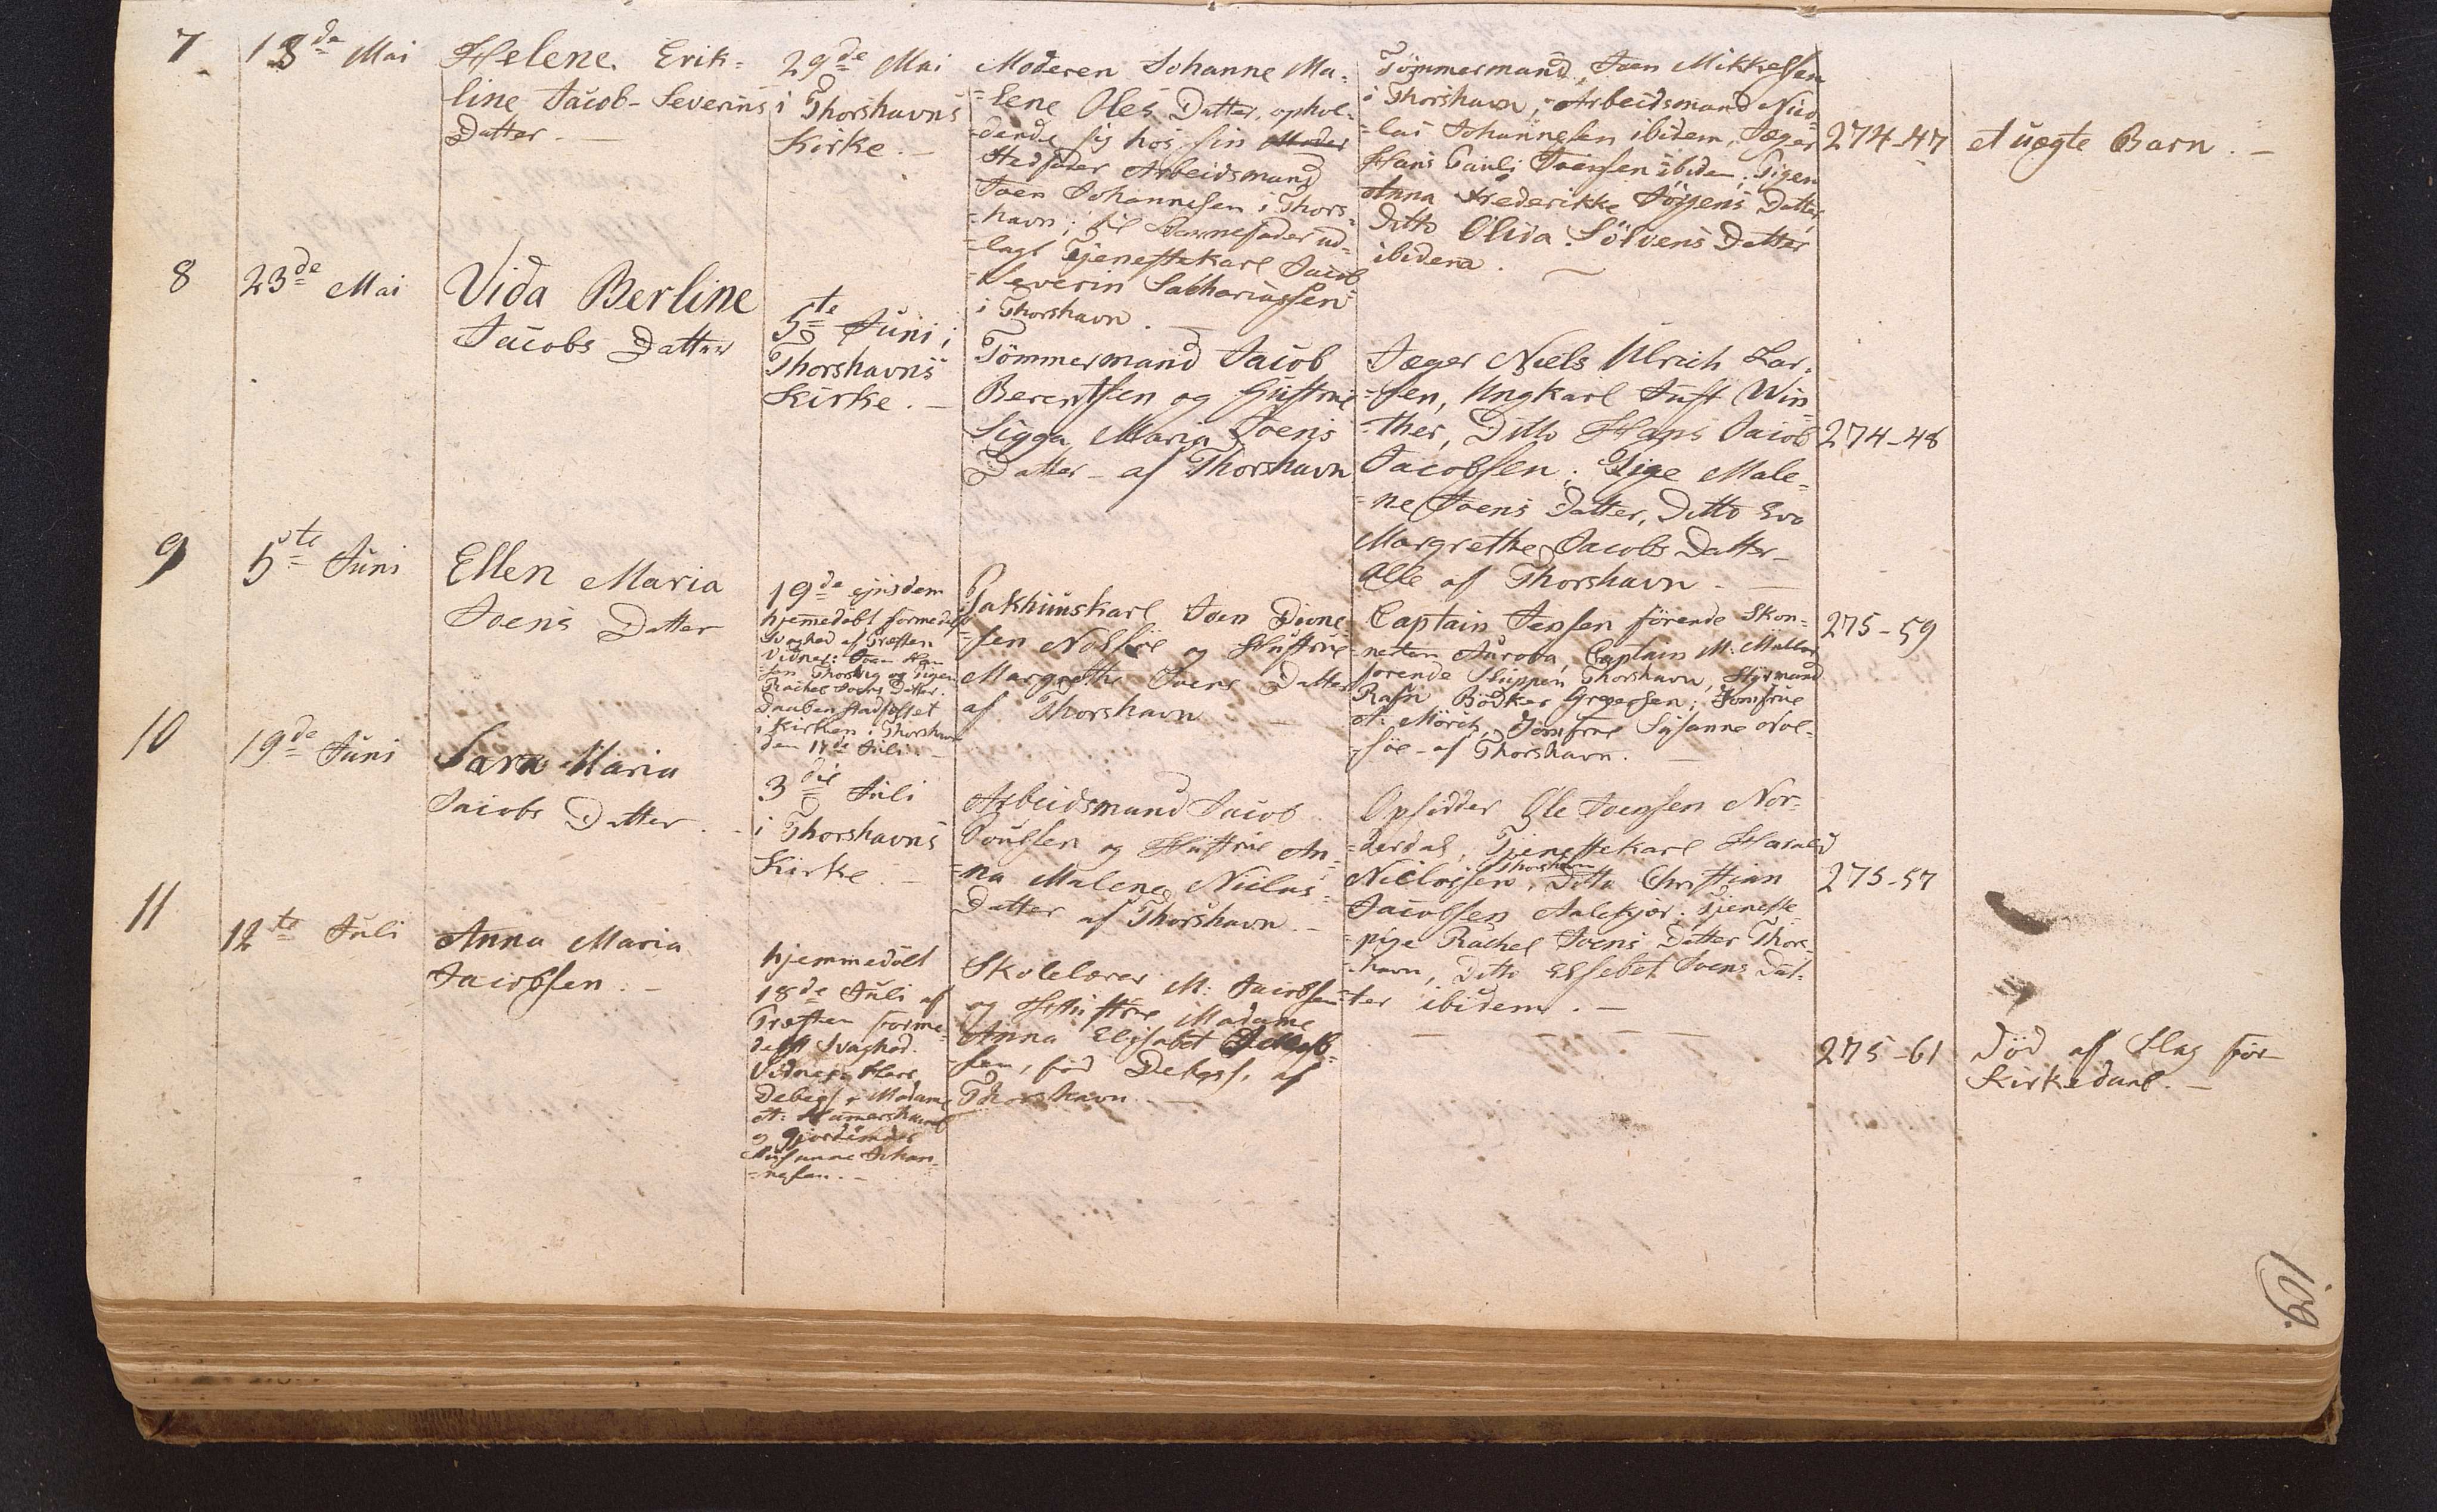 7
13de Mai
Helene Erik=
line Jacob-Severins
Datter.
29de Mai
i Thorshavns
Kirke.
Moderen Johanne Ma=
=lene Oles Datter, ophol=
=dende sig hos sin
Stedfader Arbeidsmand
Joen Johannesen i Thors=
=havn; til Barnefader ud=
=lagt Tjenestekarl Jacob
Severin Sachariassen
i Thorshavn.
Tömmermand Joen Mikkelsen
i Thorshavn, Arbeidsmand Nico=
=lai Johannesen ibidem, Jæger
Hans Pauli Joensen ibidem; Pigen
Anna Frederikke Datter,
Ditto Olivia Sölvens Datter
ibidem.
274-47
et uægte Barn.
8
23de Mai
Vida Berline
Jacobs Datter
5te Juni i
Thorshavns
Kirke.
Tömmermand Jacob
Berentsen og Hustrue
Sigga Maria Joens
Datter - af Thorshavn
Jæger Niels Ulrich Lar=
=sen, Ungkarl Just Win=
=ther, Ditto Hans Jacob
Jacobsen; Pige Male=
=ne Joens Datter, Ditto Eva
Margrethe Jacobs Datter -
alle af Thorshavn.
274-48
9
5te Juni
Ellen Maria
Joens Datter
19de ejusdem
hjemmedöbt formedelst
Svaghed af Præsten
Vidner: Joen Han=
=sen Thorsvig og Pigen
Rachel Joens Datter.
Daaben stadfæstet
i Kirken i Thorshavn
den 17de Juli.
Pakhuuskarl Joen Dione=
=sen Nolsöe og Hustrue
Margrethe Joens Datter
af Thorshavn
Captain Jensen förende Skon=
=nerten Aurora, Captain M. Müller
förende Sluppen Thorshavn, Styrmand
Rafn Bödker Gregersen; Jomfrue
A. Mörch, Jomfrue Susanne Nol=
=söe - af Thorshavn.
275-59
10
19de Juni
Sara Maria
Jacobs Datter.
3die Juli
i Thorshavns
Kirke.
Arbeidsmand Jacob
Poulsen og Hustrue An=
=na Malene Niclas=
Datter af Thorshavn.
Opsidder Ole Joensen Nor=
=derdal, Tjenestekarl Harald
Niclassen Thorshavn, Ditto Christian
Jacobsen Tjeneste=
=pige Rachel Joens Datter Thors=
=havn, Ditto Elsebet Joens Dat=
=ter ibidem.
275-57
11
12te Juli
Anna Maria
Jacobsen.
hjemmedöbt
18de Juli af
Præsten forme=
delst Svaghed.
Vidner: Herr
Debes, Madame
A. Hammershaimb
og Gjordemoder
Susanne Johan=
=nesen.
Skolelærer M. Jacobsen
og Hustrue Madame
Anna Elisabet Jacob=
=sen, föd Debess, af
Thorshavn.
275-61
Död af Slag för
Kirkedaab.
109.